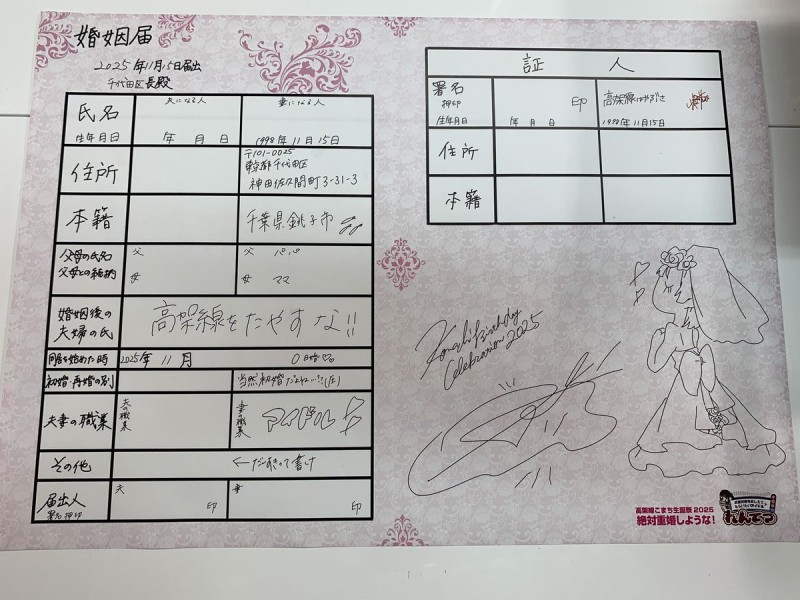 婚姻届
2025年11月15日届出
千代田区長殿
氏名
生年月日
夫になる人
年 月 日
妻になる人
1998年11月15日
住所
〒101-0025
東京都千代田区
神田佐久間町3-31-3
本籍
千葉県銚子市
父母の氏名
父母との続柄
父
母
父 パパ
母 ママ
婚姻後の
夫婦の氏
高架線をたやすな!!
同居を始めた時
2025年 11月
0日婚
初婚・再婚の別
夫妻の職業
夫の職業
妻の職業
アイドル
その他
届出人
署名押印
夫
印
妻
印
証人
署名
押印
生年月日
印
年 月 日
高架線はやぶさ
1998年11月15日
住所
本籍
Komachi Birthday
Celebration 2025
高架線こまち生誕祭 2025
絶対重婚しような!
れんてつ